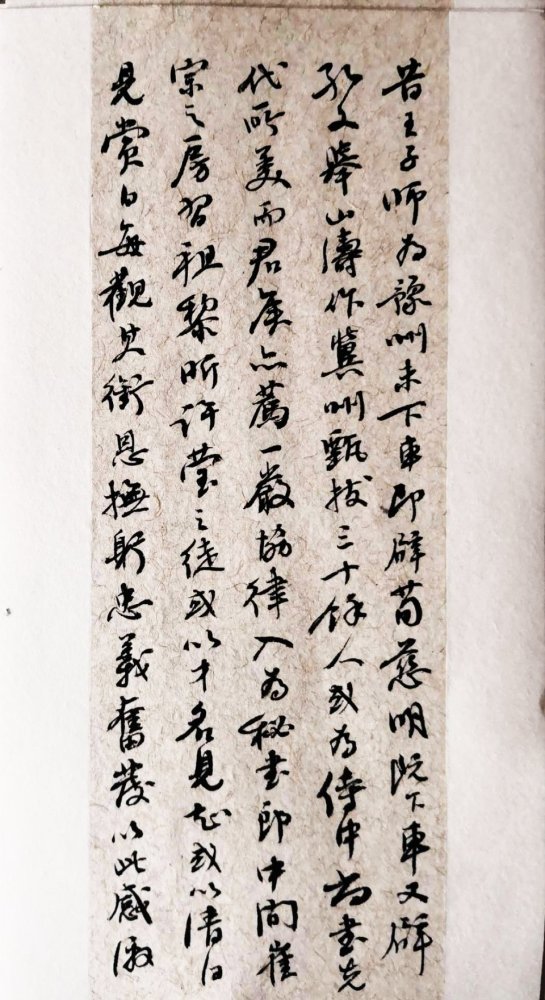 昔王子師為豫州未下車即辟荀慈明既下車又辟
孔文舉山濤作冀州甄拔三十餘人或為侍中尚書先
代所美而君侯亦薦一嚴協律入為秘書郎中間崔
宗之房習祖黎昕許瑩之徒或以才名見知或以清白
見賞白每觀其銜恩撫躬忠義奮發以此感激